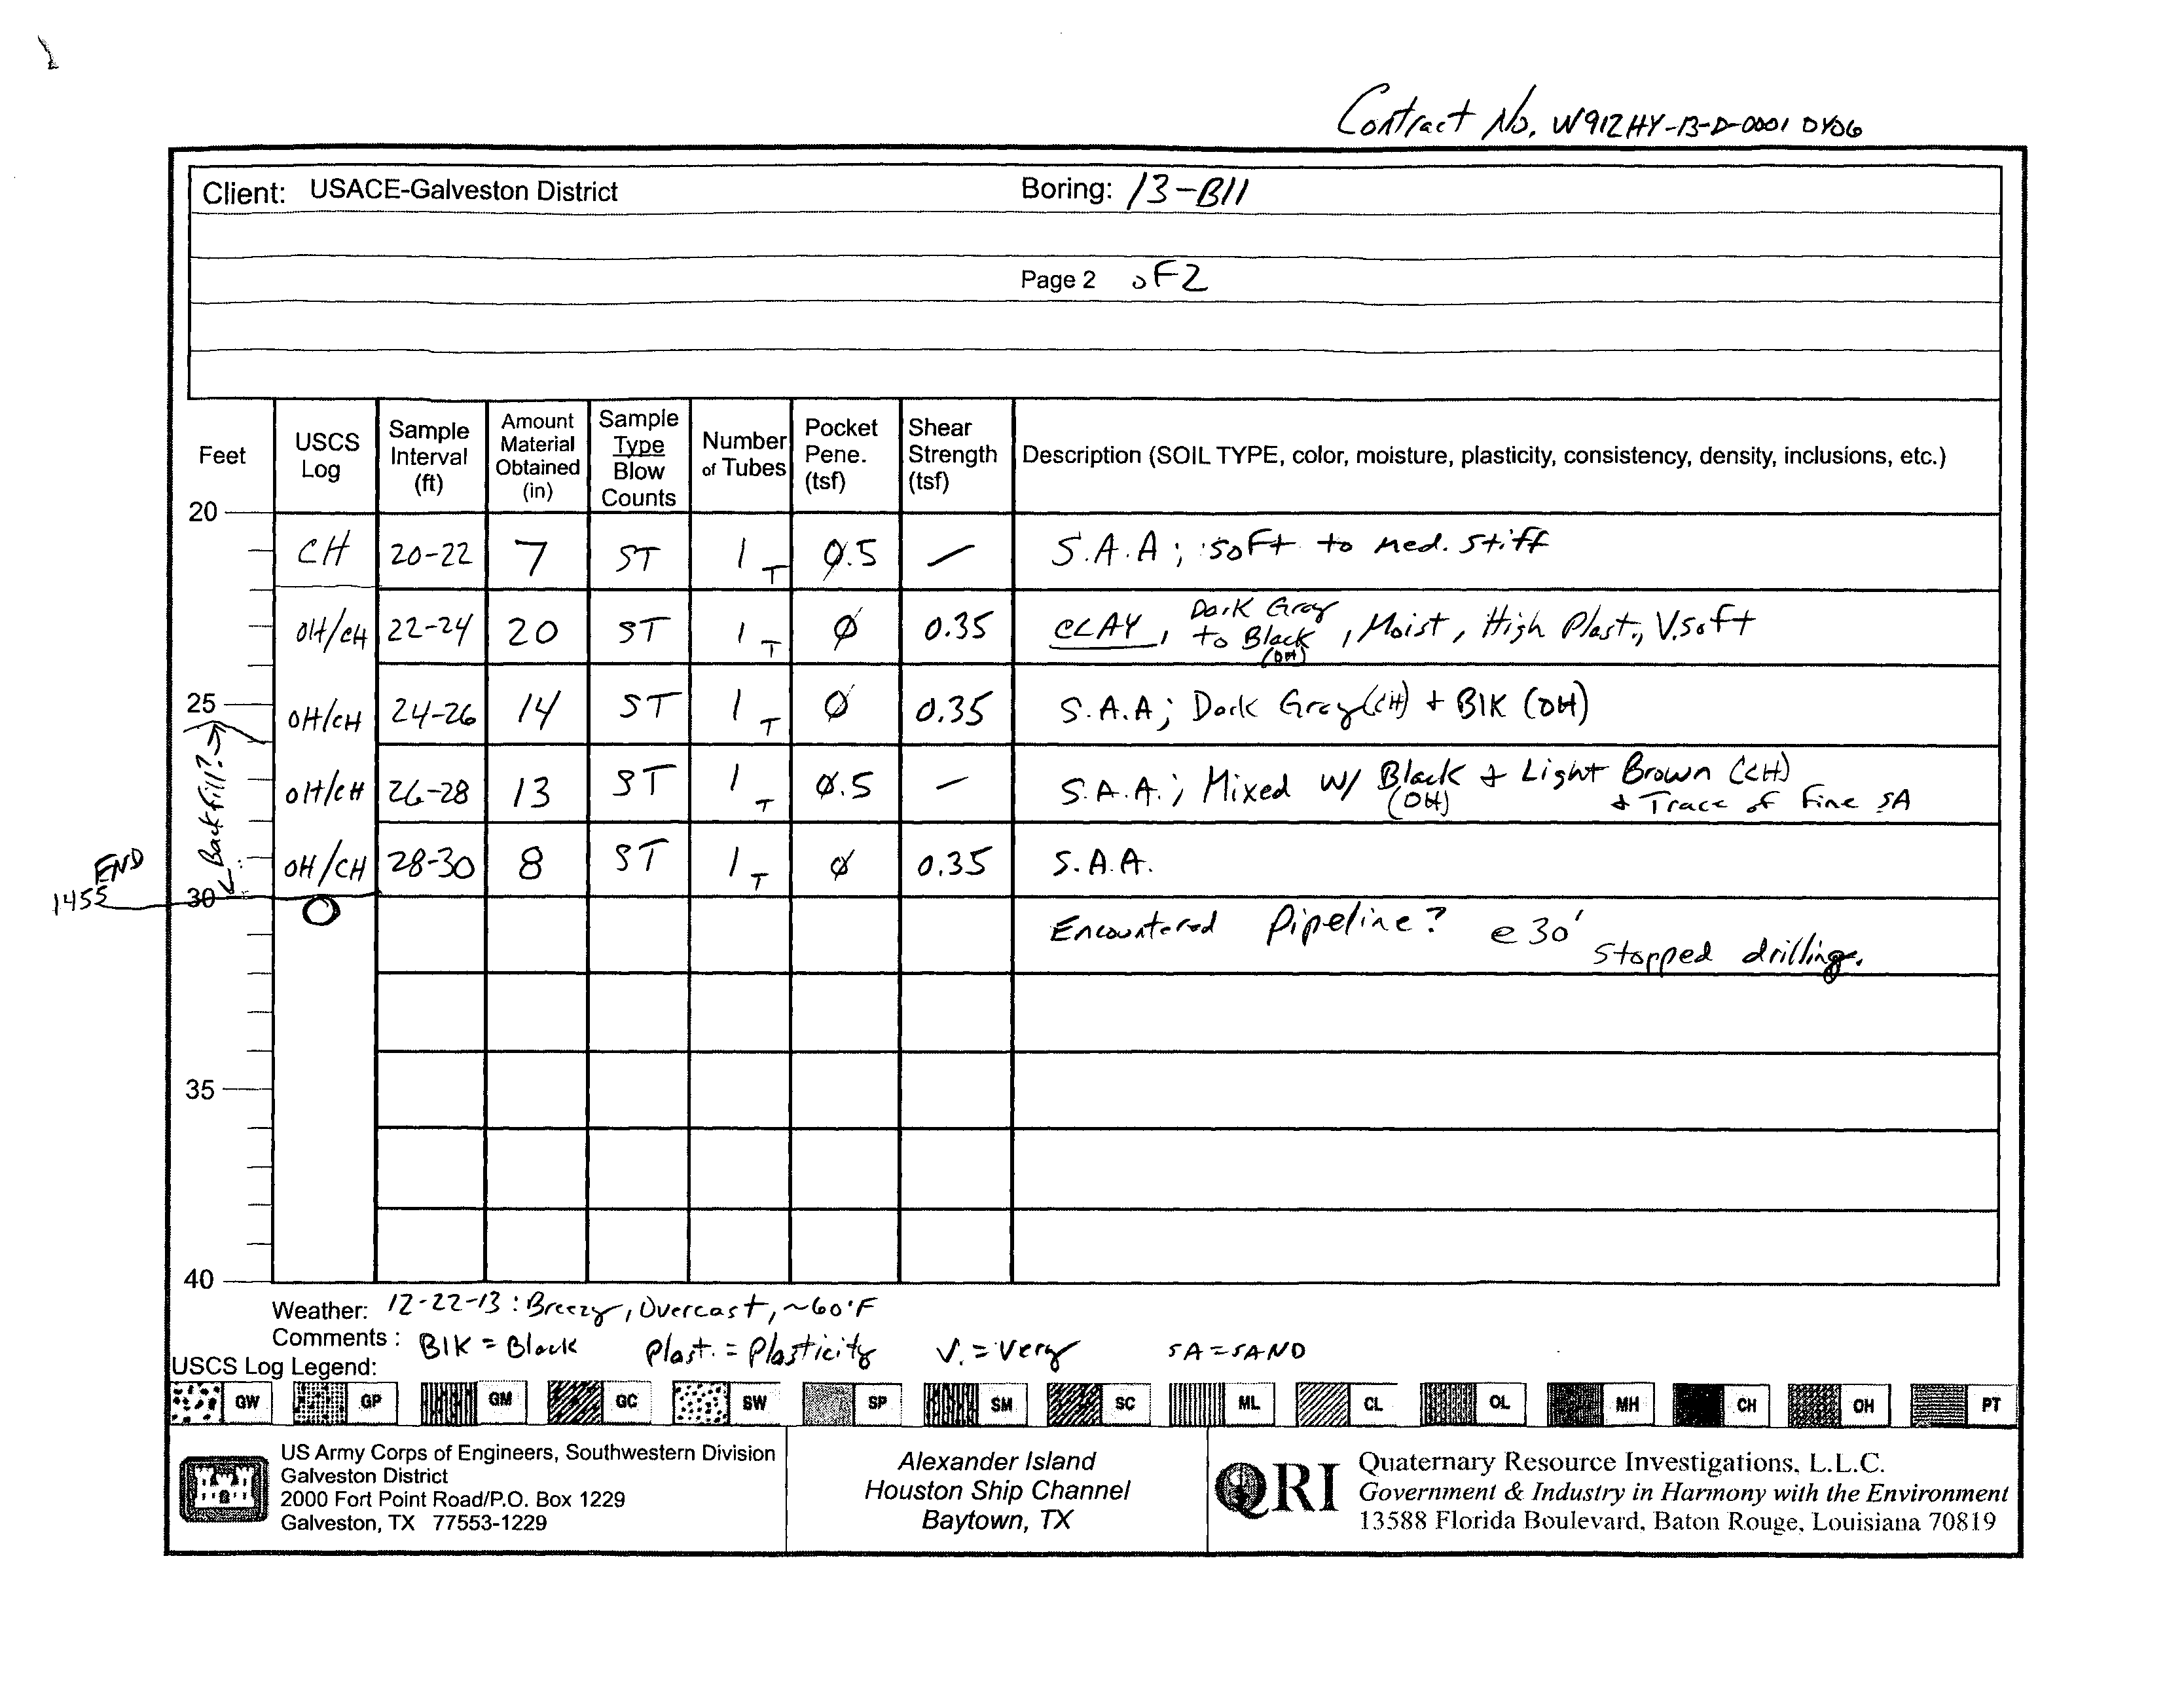 Contract No. W912HY-13-D-0001 DY06
Client: USACE-Galveston District Boring: 13-B11
Page 2 of 2
Feet USCS Log Sample Interval (ft) Amount Material Obtained (in) Sample Type Blow Counts Number of Tubes Pocket Pene. (tsf) Shear Strength (tsf) Description (SOIL TYPE, color, moisture, plasticity, consistency, density, inclusions, etc.)
20
CH 20-22 7 ST 1 T 0.5 — S.A.A; soft to med. stiff
OH/CH 22-24 20 ST 1 T Ø 0.35 CLAY, Dark Gray to Black (OH), Moist, High Plast., V.soft
25
OH/CH 24-26 14 ST 1 T Ø 0.35 S.A.A; Dark Gray (CH) + BlK (OH)
Backfill?
OH/CH 26-28 13 ST 1 T 0.5 — S.A.A.; Mixed w/ Black (OH) + Light Brown (CH)
+ Trace of fine SA
OH/CH 28-30 8 ST 1 T Ø 0.35 S.A.A.
END
1455
30
Encountered Pipeline? @ 30'
Stopped drilling.
35
40
Weather: 12-22-13: Breezy, Overcast, ~60°F
Comments: BlK = Black Plast. = Plasticity V. = Very SA = SAND
USCS Log Legend:
GW GP GM GC SW SP SM SC ML CL OL MH CH OH PT
US Army Corps of Engineers, Southwestern Division
Galveston District
2000 Fort Point Road/P.O. Box 1229
Galveston, TX 77553-1229
Alexander Island
Houston Ship Channel
Baytown, TX
QRI
Quaternary Resource Investigations, L.L.C.
Government & Industry in Harmony with the Environment
13588 Florida Boulevard, Baton Rouge, Louisiana 70819